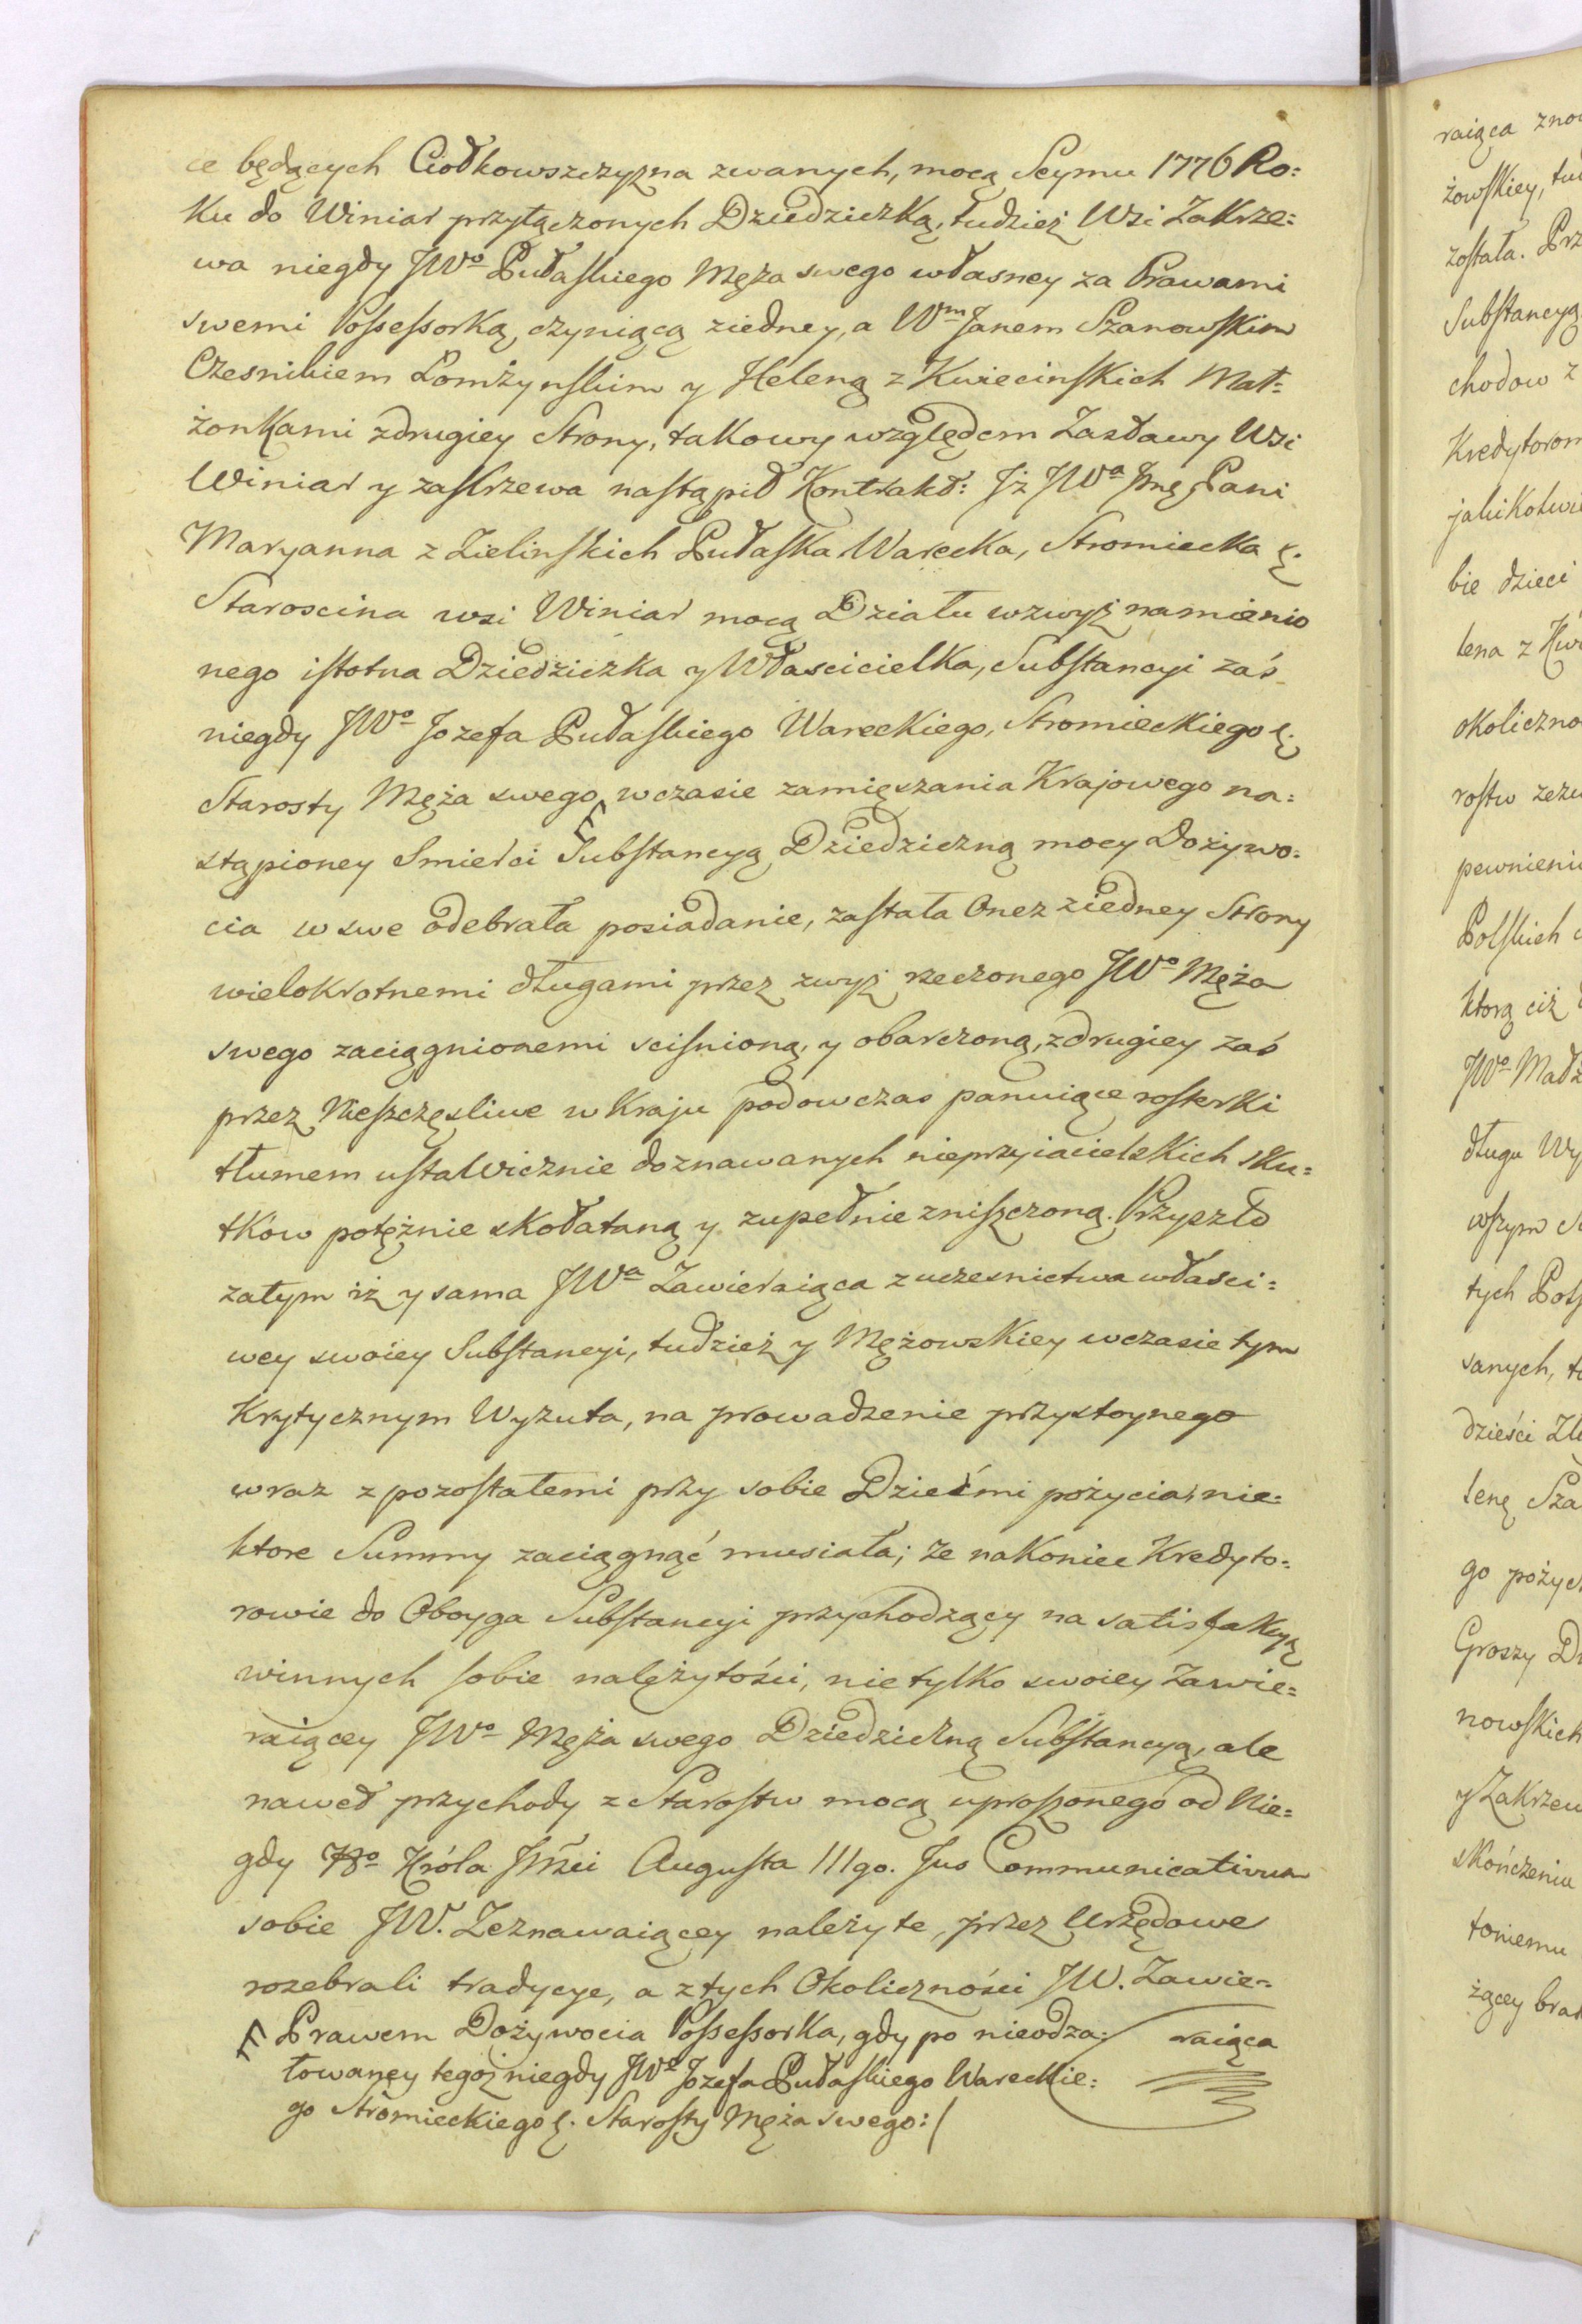 ce będących Ciołkowszczyzna zwanych, mocą Seymu 1776 Ro:
ku do Winiar przyłączonych Dziedziczką, tudzież Wsi Zakrze:
wa niegdy JWo Pułaskiego Męża swego własney za Prawami
swemi Possessorką, czyniącą ziedney, a Wm Janem Szanowskim
Czesnikiem Łomżynskim y Heleną z Kwiecinskich Mał:
żonkami zdrugiey Strony, takowy względem Zastawy Wsi
Winiar y zakrzewa nastąpił Kontrakt: Iż JWa Jmę Pani
Maryanna z Zielinskich Pułaska Warecka, Stromiecka &.
Staroscina wsi Winiar mocą Działu wzwyż namienio
nego istotna Dziedziczka y Włascicielka, Substancyi zaś
niegdy JWo Jozefa Pułaskiego Wareckiego, Stromieckiego &.
Starosty Męża swego, wczasie zamięszania Krajowego na:
stąpioney Smierci Substancyą Dziedziczną mocy Dożywo:
cia w swe odebrała posiadanie, zastała Onez ziedney Strony
wielokrotnemi długami przez zwyż rzeczonego JWo Męża
swego zaciągnionemi scisnioną, y obarczoną, zdrugiey zaś
przez Nieszczęsliwe w Kraju podowczas panuiące rosterki
tłumem ustawicznie doznawanych nieprzyiacielskich sku:
tków potężnie skołataną y zupełnie zniszczoną. Przyszło
zatym iż y sama JWa Zawieraiąca z uczesnictwa własci:
wey swoiey Substancyi, tudzież y Mężowskiey wczasie tym
Krytycznym Wyzuta, na prowadzenie przystoynego
wraz z pozostałemi przy sobie Dziećmi pożycia, nie:
ktore Summy zaciągnąć musiała; że nakoniec Kredyto:
rowie do Oboyga Substancyi przychodzący na satisfakcyą
winnych sobie należytości, nietylko swoiey Zawie:
raiącey JWo Męża swego Dziedziczną Substancyą, ale
nawet przychody z Starostw mocą uproszonego od Nie:
gdy Króla Jmści Augusta IIIgo. Jus Communicativum
sobie JW. Zeznawaiącey należyte, przez Urzędowe
rozebrali tradycye, a z tych Okoliczności JW. Zawie:
Prawem Dożywocia Possessorka, gdy po nieodża: raiąca
łowaney tegoż niegdy JWo Jozefa Pułaskiego Wareckie:
go Stromieckiego &. Starosty Męża swego:/
raiąca
żowskiey,
została.
Substancyą
chodow z
Kredytorom
bie dzieci
lena z
pewnieni
Polskich
ktorą ciż
JWo
długu
tych
sanych,
dzieści
lenę
go
Groszy
nowskich
y Zakrzew
skończeniu
toniemu
żącey